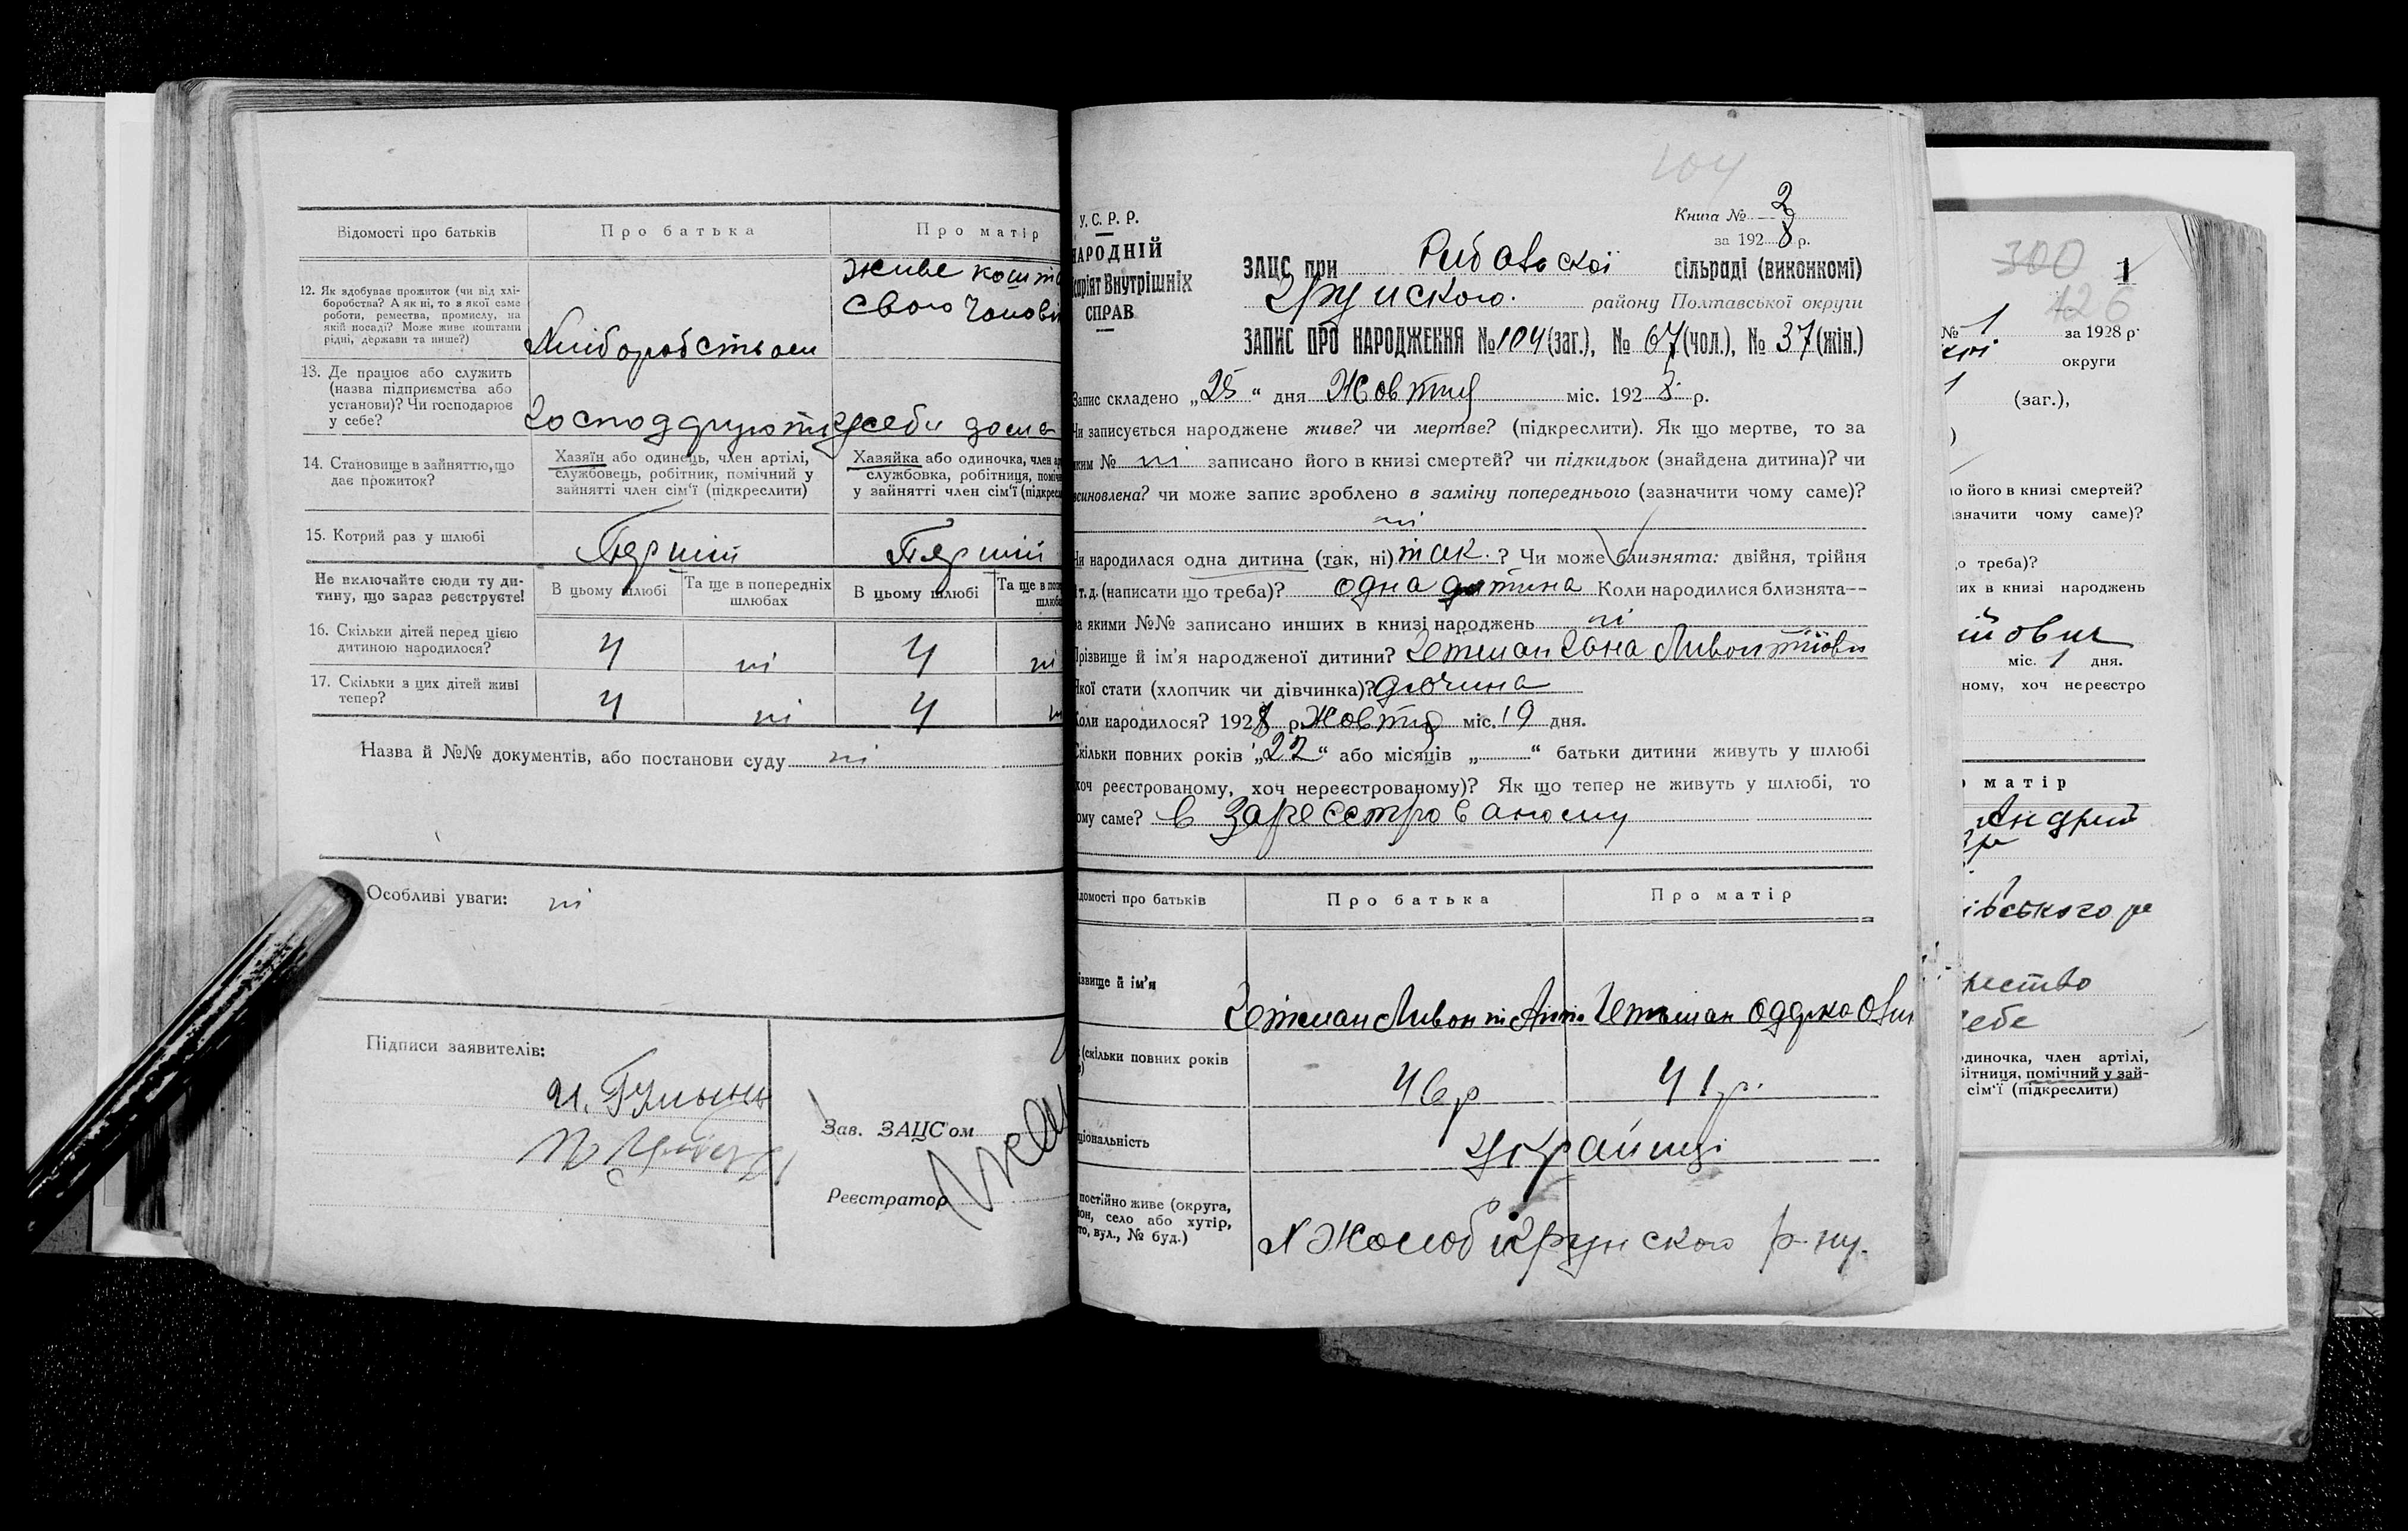 Відомості про батьків
Про батька
Про матір
12. Як здобуває прожиток (чи від хлі-
боробства? А як ні, то з якої саме
роботи, ремества, промислу, на
якій посаді? Може живе коштами
рідні, держави та инше?)
Хліборобством
живе кошта
свого чолові
13. Де працює або служить
(назва підприємства або
установи)? Чи господарює
у себе?
Господарюють у себе дома
14. Становище в зайняттю, що
дає прожиток?
Хазяїн або одинець, член артілі,
службовець, робітник, помічний у
зайнятті член сім'ї (підкреслити)
Хазяйка або одиночка, член ар
службовка, робітниця, поміч
у зайнятті член сім'ї (підкресл
15. Котрий раз у шлюбі
Перший
Перший
Не включайте сюди ту ди-
тину, що зараз реєструєте!
В цьому шлюбі
Та ще в попередніх
шлюбах
В цьому шлюбі
Та ще в по
шлюб
16. Скільки дітей перед цією
дитиною народилося?
4
ні
4
ні
17. Скільки з цих дітей живі
тепер?
4
ні
4
Назва й №№ документів, або постанови суду ні
Особливі уваги: ні
Підписи заявителів:
Зав. ЗАЦС'ом
Реєстратор
104
У.С.Р.Р.
НАРОДНІЙ
саріят Внутрішніх
СПРАВ
Книга № 2
за 1928 р.
ЗАЦС при сільраді (виконкомі)
району Полтавської округи
ЗАПИС ПРО НАРОДЖЕННЯ № 104 (заг.), № 67 (чол.), № 37 (жін.)
Запис складено „25" дня Жовтня міс. 1928 р.
Чи записується народжене живе? чи мертве? (підкреслити). Як що мертве, то за
яким № ні записано його в книзі смертей? чи підкидьок (знайдена дитина)? чи
всиновлена? чи може запис зроблено в заміну попереднього (зазначити чому саме)?
ні
Чи народилася одна дитина (так, ні) так.? Чи може близнята: двійня, трійня
і т.д. (написати що треба)? одна дитина Коли народилися близнята—
за якими №№ записано инших в книзі народжень ні
Прізвище й ім'я народженої дитини? Гетман
Якої стати (хлопчик чи дівчинка)? дівчина
Коли народилося? 1928 р. Жовтня міс. 19 дня.
Скільки повних років „22" або місяців „ " батьки дитини живуть у шлюбі
хоч реєстрованому, хоч нереєстрованому)? Як що тепер не живуть у шлюбі, то
чому саме? в зареєстрованому
ідомості про батьків
Про батька
Про матір
ізвище й ім'я
Гетман
Гетьман
(скільки повних років
46 р
41 р.
ціональність
українці
постійно живе (округа,
йон, село або хутір,
то, вул., № буд.)
300
1
126
№ 1 за 1928 р.
округи
1 (заг.),
)
о його в книзі смертей?
азначити чому саме)?
о треба)?
их в книзі народжень
йович
міс. 1 дня.
ному, хоч нереєстро
матір
Андрий
івського ре
себе
одиночка, член артілі,
бітниця, помічний у зай-
сім'ї (підкреслити)